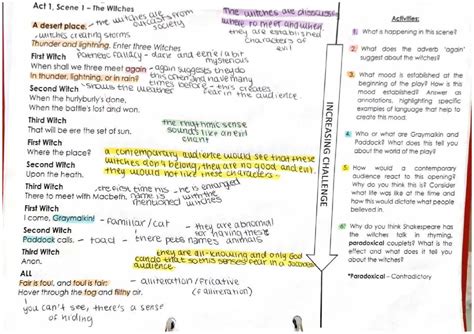 Act 1, Scene 1 – The Witches
A desert place. - the witches are outcasts from society
the witches are discussing where to meet and when.
they are established characters of evil
witches creating storms
Thunder and lightning. Enter three Witches
Pathetic fallacy - dark and eerie / a bit mysterious
First Witch
When shall we three meet again - again suggests they do this often and have many times before - this creates fear in the audience.
In thunder, lightning, or in rain?
shows the weather
Second Witch
When the hurlyburly's done,
When the battle's lost and won.
Third Witch
That will be ere the set of sun.
the rhythmic sense sounds like an evil chant
First Witch
Where the place?
a contemporary audience would see that these witches don't belong, they are no good and evil. they would not like these characters.
Second Witch
Upon the heath.
Third Witch
There to meet with Macbeth.
the first time his name is mentioned
he is entangled with the witches
First Witch
I come, Graymalkin! - familiar / cat
they are abnormal for having these animals
Second Witch
Paddock calls. - toad - there pets names
Third Witch
Anon.
they are all-knowing and only God can do that so this senses fear in a Jacobean audience
ALL
Fair is foul, and foul is fair:
Hover through the fog and filthy air.
- alliteration / fricative
(f alliteration)
you can't see, there's a sense of hiding
INCREASING CHALLENGE
Activities:
1. What is happening in this scene?
2. What does the adverb 'again' suggest about the witches?
3. What mood is established at the beginning of the play? How is this mood established? Answer as annotations, highlighting specific examples of language that help to create this mood.
4. Who or what are Graymalkin and Paddock? What does this tell you about the world of the play?
5. How would a contemporary audience react to this opening? Why do you think this is? Consider what life was like at the time and how this would dictate what people believed in.
6. Why do you think Shakespeare has the witches talk in rhyming, paradoxical couplets? What is the effect and what does it tell you about the witches?
*Paradoxical – Contradictory